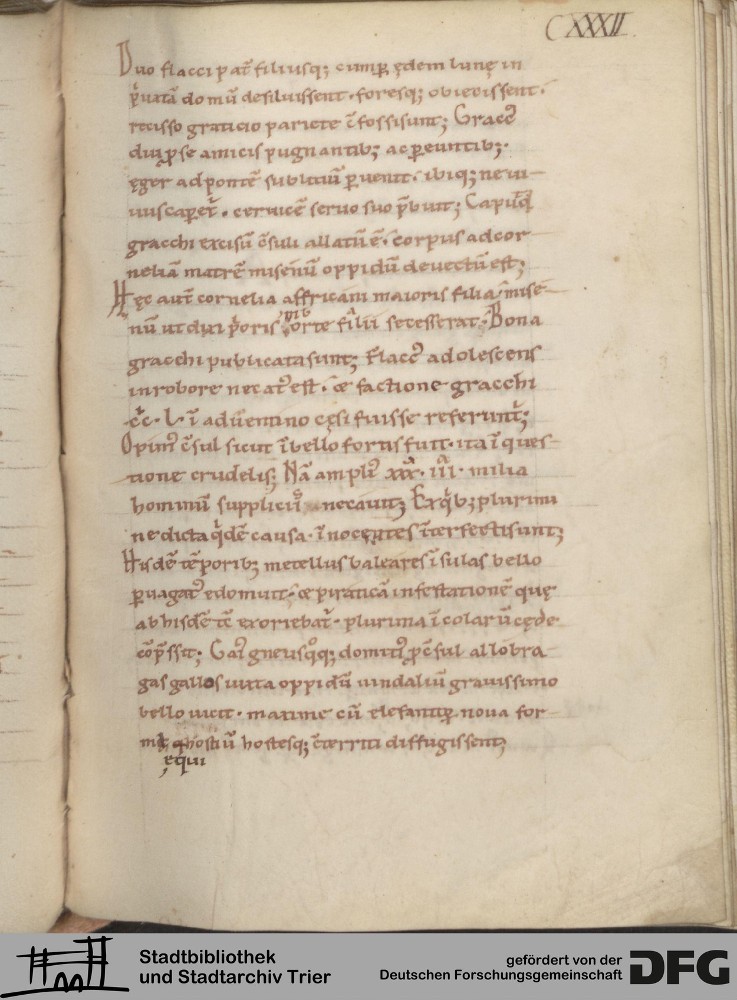 CXXXII
Duo flacci pat̄ filiusq; cum ꝑ ędem lunę in
p̍uatā domū desiluissent · foresq; obiecissent ·
rescisso graticio pariete c̄fossi sunt; Gracc᷒
diu ꝓ se amicis pugnantib; ac ꝑeuntib; ·
ęger ad pontē subliciū ꝑuenit · ibiq; ne ui-
uus caperet᷑ · ceruicē seruo suo p̄buit; Caput q̄
gracchi excisū c̄suli allatū ē · corpus ad cor-
neliā matrē misenū oppidū deuectū est;
Hęc aut̄ cornelia affricani maioris filia · mise-
nū ut dixi p̍oris morte filii secesserat · Bona
gracchi publicata sunt; Flacc᷒ adolescens
in robore necat᷒ est · & factione gracchi
cc̄ · L · ī aduentino cęsi fuisse referunt᷑;
Opim᷒ c̄sul sicut ī bello fortis fuit · ita ī ques-
tione crudelis; Nā ampli᷒ xxx · iii · milia
hominū suppliciū necauit; Ex q̍b; plurimi
ne dicta q̍dē causa · īnocentes īterfecti sunt;
Hisdē tēporib; metellus baleares īsulas bello
ꝑuagat᷒ edomuit · & piraticā infestationē quę
ab hisdē tc̄ exoriebat᷑ · plurima īcolarū cęde
cōp̄ssit; Gai᷒ gneusq̊q; domiti᷒ ꝓc̄sul allobra-
gas gallos iuxta oppidū uindaliū grauissimo
bello uicit · maxime cū elefantū ꝑ noua for-
ma hostiū hostesq; c̄territi diffugissent;
ęqui
Stadtbibliothek
und Stadtarchiv Trier
gefördert von der
Deutschen Forschungsgemeinschaft
DFG